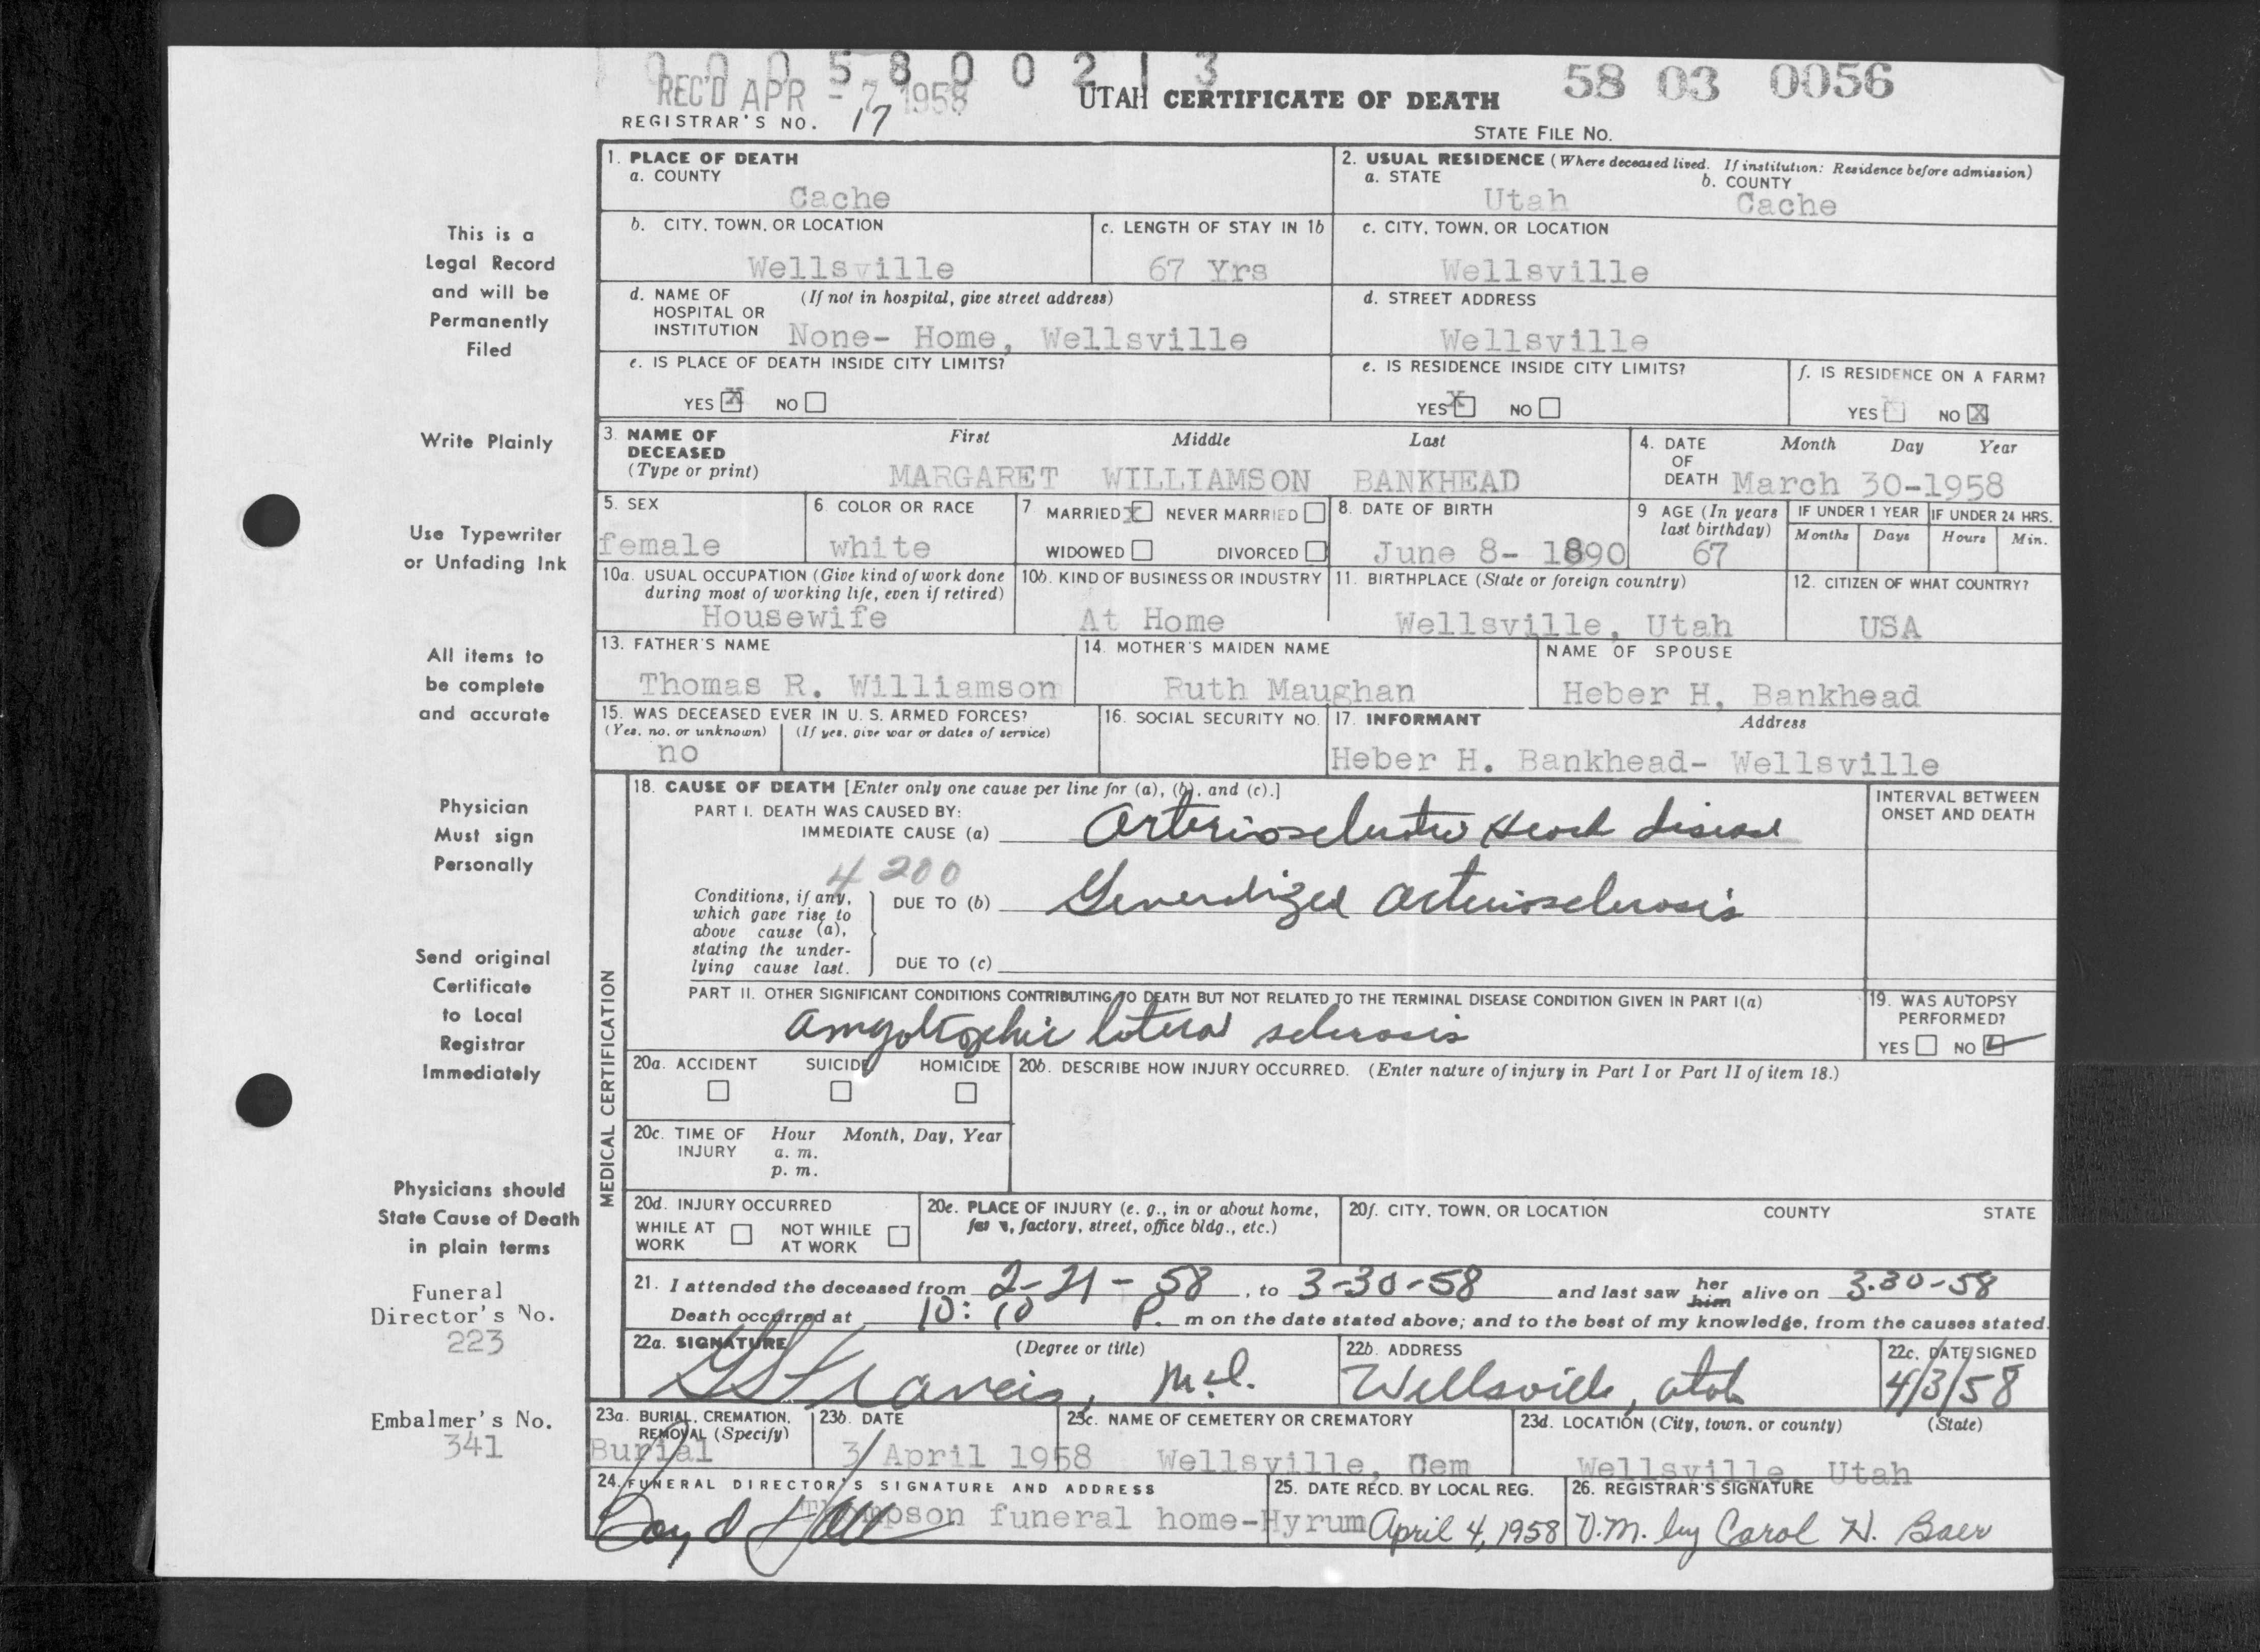 0 0 0 5 8 0 0 2 1 3
REC'D APR - 7 1958
UTAH CERTIFICATE OF DEATH
58 03 0056
REGISTRAR'S NO. 17
STATE FILE NO.
This is a
Legal Record
and will be
Permanently
Filed
Write Plainly
Use Typewriter
or Unfading Ink
All items to
be complete
and accurate
Physician
Must sign
Personally
Send original
Certificate
to Local
Registrar
Immediately
Physicians should
State Cause of Death
in plain terms
Funeral
Director's No.
223
Embalmer's No.
341
1. PLACE OF DEATH
a. COUNTY
Cache
2. USUAL RESIDENCE (Where deceased lived. If institution: Residence before admission)
a. STATE b. COUNTY
Utah Cache
b. CITY, TOWN, OR LOCATION
Wellsville
c. LENGTH OF STAY IN 1b
67 Yrs
c. CITY, TOWN, OR LOCATION
Wellsville
d. NAME OF (If not in hospital, give street address)
HOSPITAL OR
INSTITUTION None- Home, Wellsville
d. STREET ADDRESS
Wellsville
e. IS PLACE OF DEATH INSIDE CITY LIMITS?
YES X NO
e. IS RESIDENCE INSIDE CITY LIMITS?
YES X NO
f. IS RESIDENCE ON A FARM?
YES NO X
3. NAME OF First Middle Last
DECEASED
(Type or print) MARGARET WILLIAMSON BANKHEAD
4. DATE Month Day Year
OF
DEATH March 30-1958
5. SEX
female
6. COLOR OR RACE
white
7 MARRIED X NEVER MARRIED
WIDOWED DIVORCED
8. DATE OF BIRTH
June 8- 1890
9 AGE (In years
last birthday)
67
IF UNDER 1 YEAR
Months Days
IF UNDER 24 HRS.
Hours Min.
10a. USUAL OCCUPATION (Give kind of work done
during most of working life, even if retired)
Housewife
10b. KIND OF BUSINESS OR INDUSTRY
At Home
11. BIRTHPLACE (State or foreign country)
Wellsville, Utah
12. CITIZEN OF WHAT COUNTRY?
USA
13. FATHER'S NAME
Thomas R. Williamson
14. MOTHER'S MAIDEN NAME
Ruth Maughan
NAME OF SPOUSE
Heber H, Bankhead
15. WAS DECEASED EVER IN U. S. ARMED FORCES?
(Yes, no, or unknown) (If yes, give war or dates of service)
no
16. SOCIAL SECURITY NO.
17. INFORMANT Address
Heber H. Bankhead- Wellsville
MEDICAL CERTIFICATION
18. CAUSE OF DEATH [Enter only one cause per line for (a), (b), and (c).]
PART I. DEATH WAS CAUSED BY:
IMMEDIATE CAUSE (a) Arteriosclerotic Heart disease
4 200
Conditions, if any,
which gave rise to
above cause (a),
stating the under-
lying cause last.
DUE TO (b) Generalized Arteriosclerosis
DUE TO (c)
INTERVAL BETWEEN
ONSET AND DEATH
PART II. OTHER SIGNIFICANT CONDITIONS CONTRIBUTING TO DEATH BUT NOT RELATED TO THE TERMINAL DISEASE CONDITION GIVEN IN PART I(a)
amyotrophic lateral sclerosis
19. WAS AUTOPSY
PERFORMED?
YES NO
20a. ACCIDENT SUICIDE HOMICIDE
20b. DESCRIBE HOW INJURY OCCURRED. (Enter nature of injury in Part I or Part II of item 18.)
20c. TIME OF Hour Month, Day, Year
INJURY a. m.
p. m.
20d. INJURY OCCURRED
WHILE AT NOT WHILE
WORK AT WORK
20e. PLACE OF INJURY (e. g., in or about home,
factory, street, office bldg., etc.)
20f. CITY, TOWN, OR LOCATION COUNTY STATE
21. I attended the deceased from 2-21-58, to 3-30-58 and last saw her him alive on 3-30-58
Death occurred at 10:10 P. m on the date stated above; and to the best of my knowledge, from the causes stated.
22a. SIGNATURE (Degree or title)
Francis, M.D.
22b. ADDRESS
Wellsville, Utah
22c. DATE SIGNED
4/3/58
23a. BURIAL, CREMATION,
REMOVAL (Specify)
Burial
23b. DATE
3/ April 1958
23c. NAME OF CEMETERY OR CREMATORY
Wellsville, Cem
23d. LOCATION (City, town, or county) (State)
Wellsville, Utah
24. FUNERAL DIRECTOR'S SIGNATURE AND ADDRESS
Thompson funeral home-Hyrum
25. DATE RECD. BY LOCAL REG.
April 4, 1958
26. REGISTRAR'S SIGNATURE
V.M. by Carol H. Baer